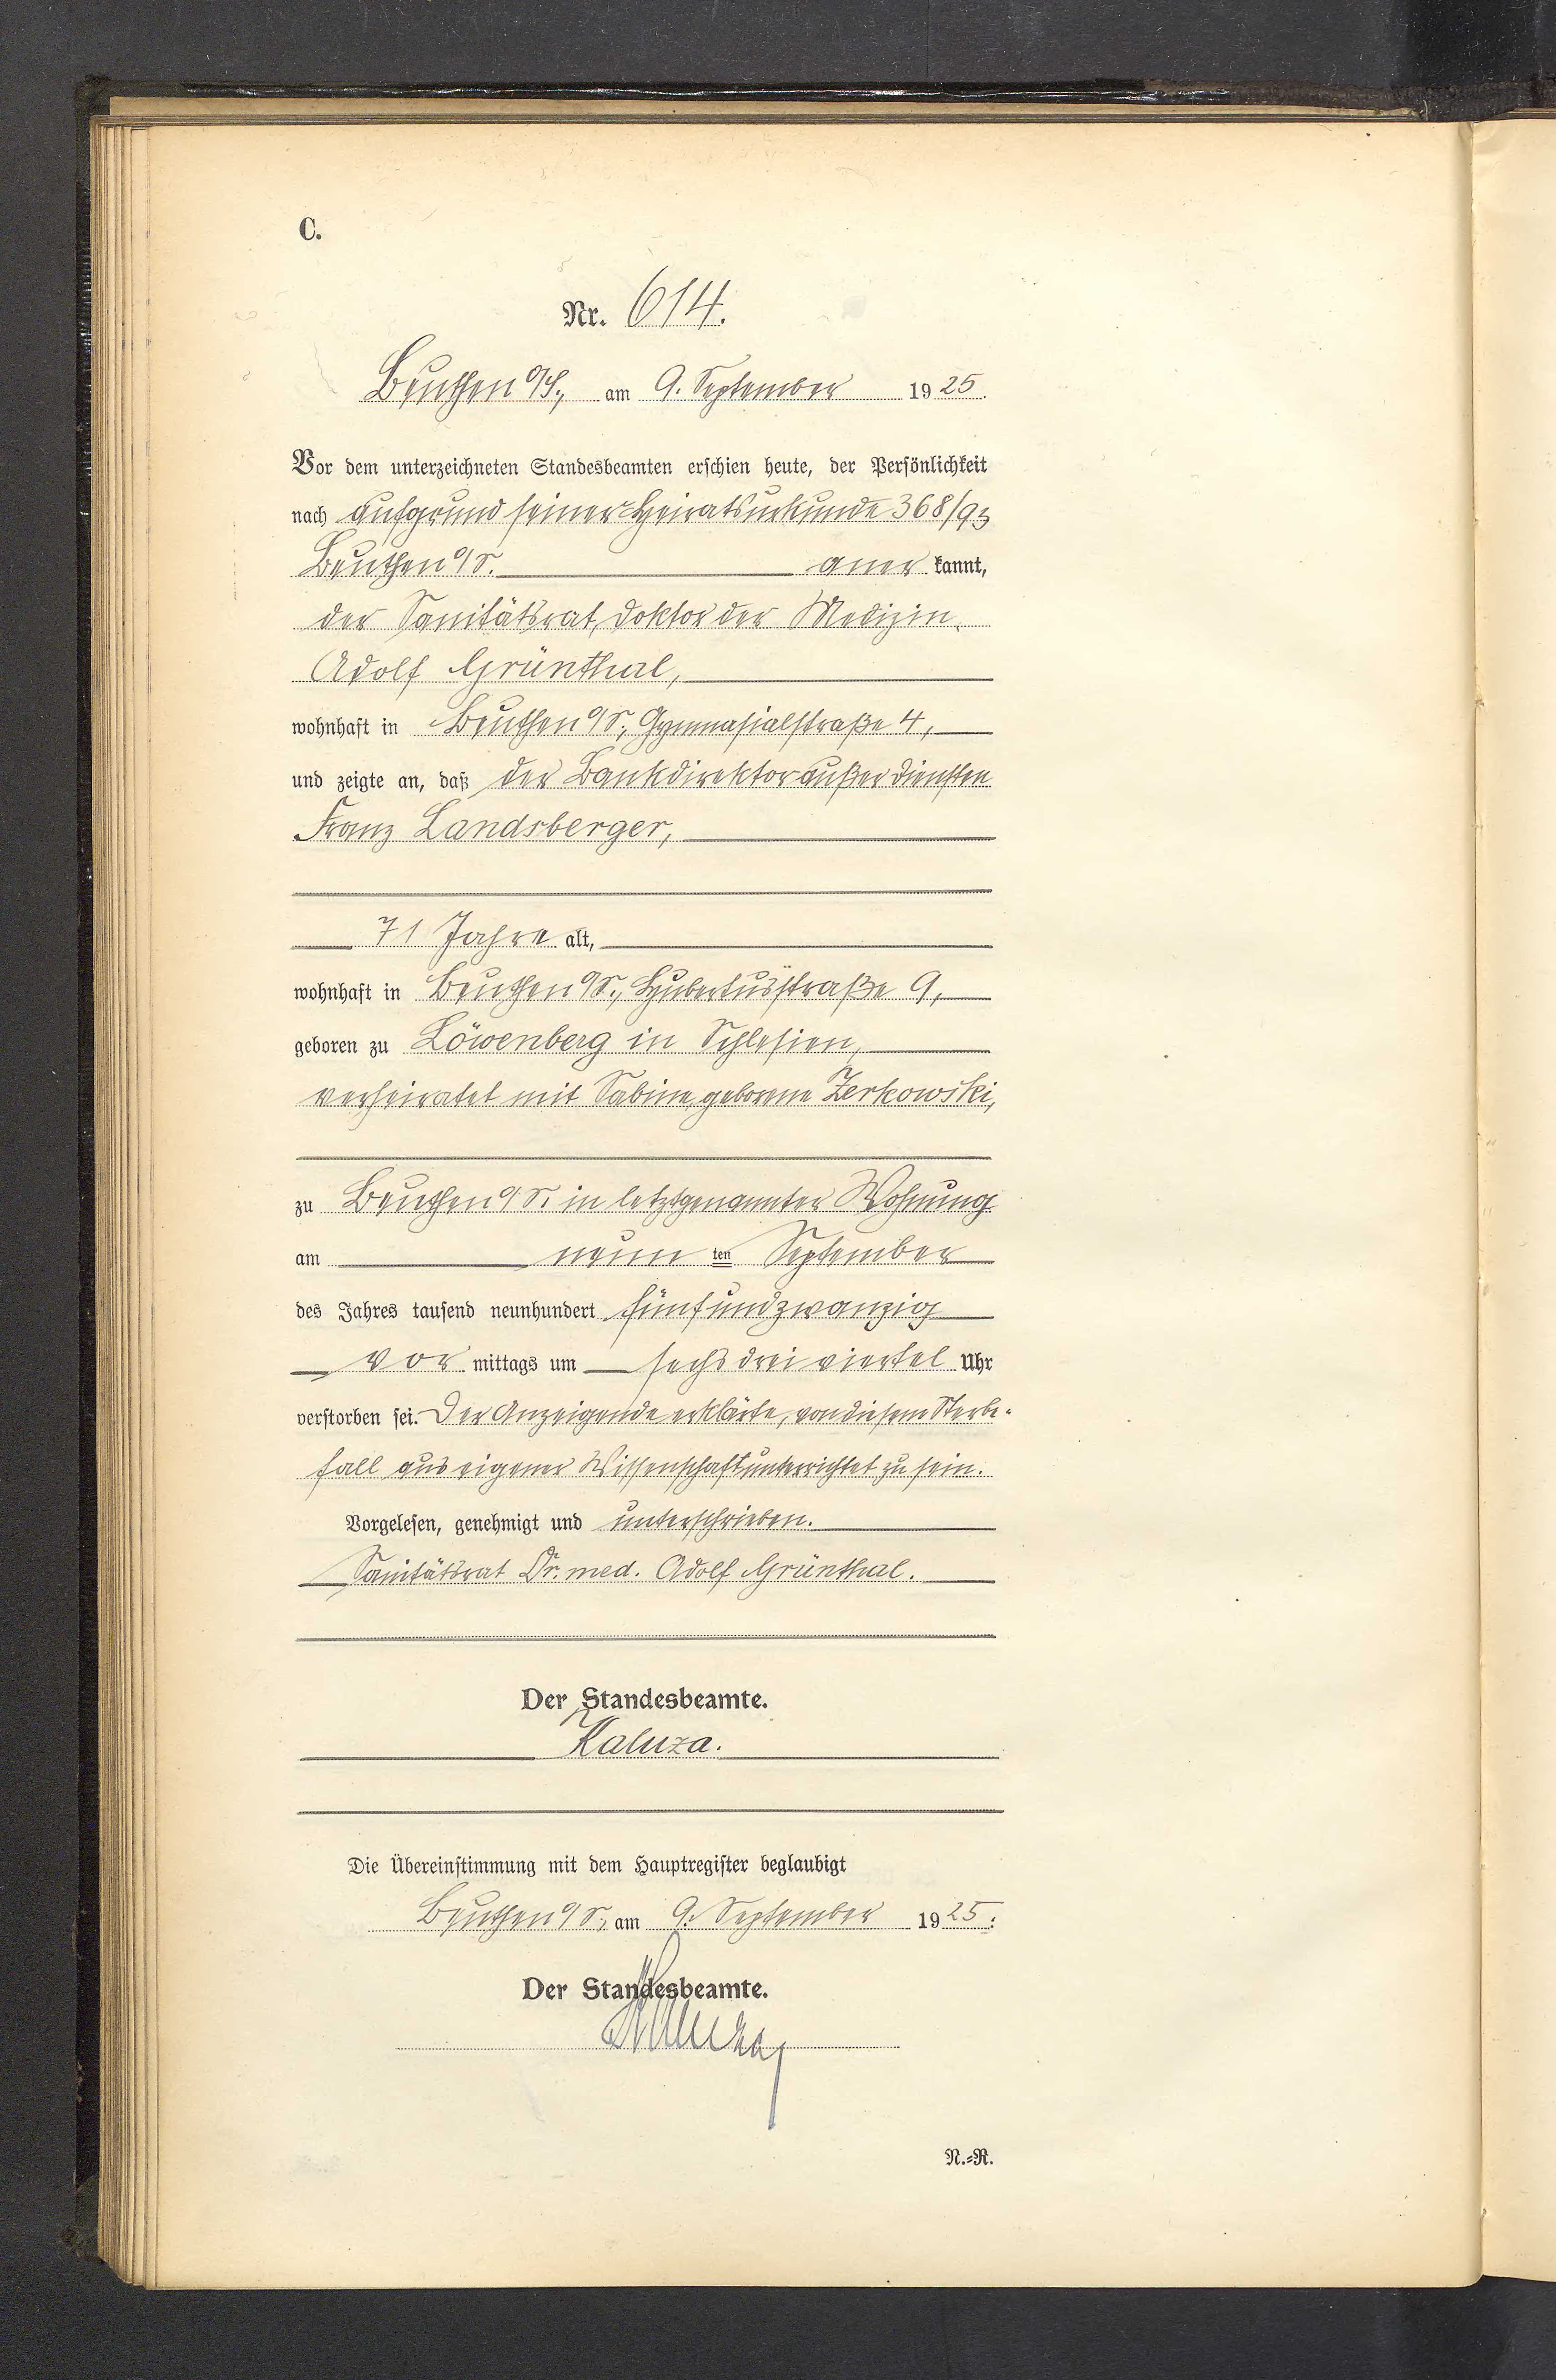 C.
Nr. 614.
Beuthen O/S., am 9. September 1925.
Vor dem unterzeichneten Standesbeamten erschien heute, der Persönlichkeit
nach aufgrund seiner Heiratsurkunde 368/93
Beuthen O/S. aner kannt,
der Sanitätsrat, Doktor der Medizin
Adolf Grünthal,
wohnhaft in Beuthen O/S., Gymnasialstraße 4,
und zeigte an, daß der Bankdirektor außer Diensten
Franz Landsberger,
71 Jahre alt,
wohnhaft in Beuthen O/S., Hubertusstraße 9,
geboren zu Löwenberg in Schlesien,
verheiratet mit Sabine geborene Zerkowski,
zu Beuthen O/S. in letztgenannter Wohnung
am neun ten September
des Jahres tausend neunhundert fünfundzwanzig
vor mittags um sechs drei viertel Uhr
verstorben sei. Der Anzeigende erklärte, von diesem Sterbe-
fall aus eigener Wissenschaft unterrichtet zu sein.
Vorgelesen, genehmigt und unterschrieben.
Sanitätsrat Dr. med. Adolf Grünthal.
Der Standesbeamte.
Kaluza.
Die Übereinstimmung mit dem Hauptregister beglaubigt
Beuthen O/S., am 9. September 1925.
Der Standesbeamte.
Kaluza
N.=R.